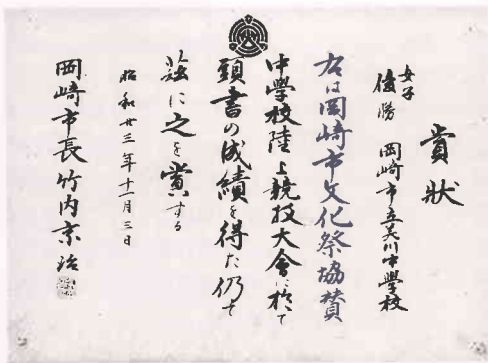 賞狀
女子
優勝 岡崎市立美川中學校
右は岡崎市文化祭協賛
中學校陸上競技大會に於て
頭書の成績を得た仍て
茲に之を賞する
昭和廿三年十一月三日
岡崎市長竹内京治